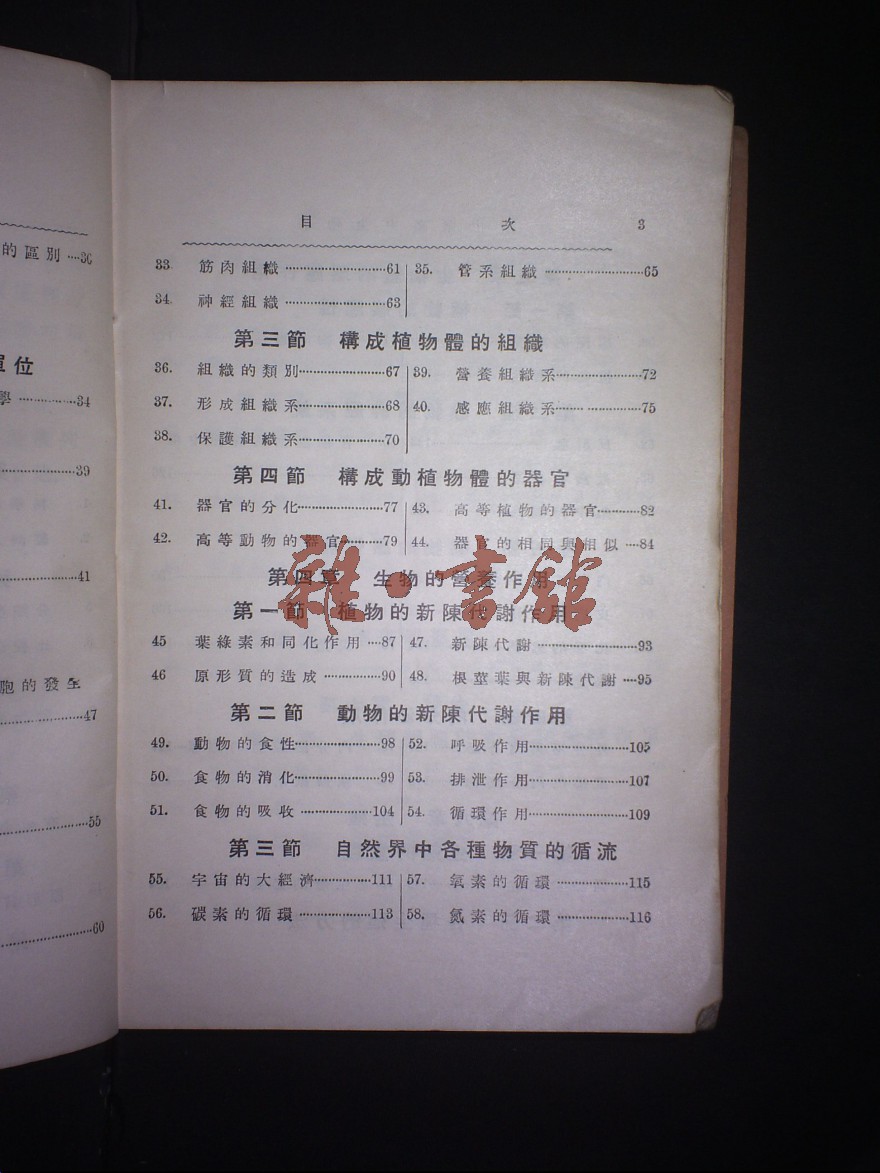 的區別 ····36
單位
學 ··············34
··················39
··················41
胞的發生
··················47
··················55
··················60
目 次 3
33. 筋肉組織 ··························61 35. 管系組織 ··························65
34. 神經組織 ··························63
第三節 構成植物體的組織
36. 組織的類別······················67 39. 營養組織系······················72
37. 形成組織系······················68 40. 感應組織系······················75
38. 保護組織系······················70
第四節 構成動植物體的器官
41. 器官的分化······················77 43. 高等植物的器官···········82
42. 高等動物的器官·········79 44. 器官的相同與相似 ····84
第四章 生物的營養作用
第一節 植物的新陳代謝作用
45 葉綠素和同化作用 ····87 47. 新陳代謝 ··························93
46 原形質的造成 ···············90 48. 根莖葉與新陳代謝 ····95
第二節 動物的新陳代謝作用
49. 動物的食性······················98 52. 呼吸作用··························105
50. 食物的消化······················99 53. 排泄作用··························107
51. 食物的吸收 ··················104 54. 循環作用··························109
第三節 自然界中各種物質的循流
55. 宇宙的大經濟···············111 57. 氧素的循環 ··················115
56. 碳素的循環 ··················113 58. 氮素的循環 ··················116
雜·書館